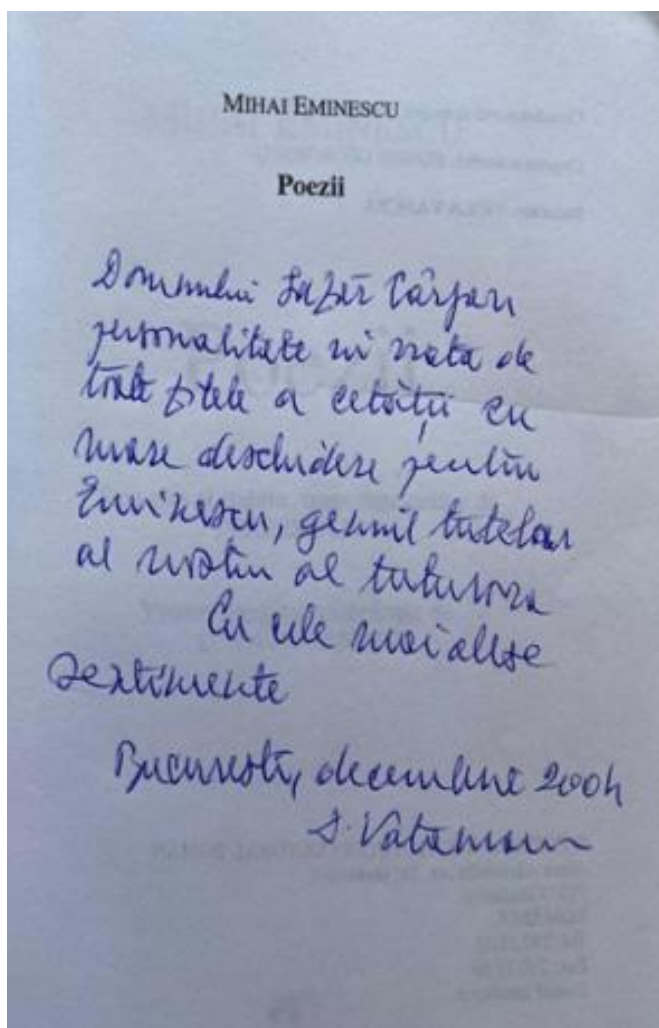 MIHAI EMINESCU
Poezii
Domnului Lazăr Cârjan
personalitate in viata de
toate zilele a cetății cu
mare deschidere pentru
Eminescu, geniul tutelar
al nostru al tuturora
Cu cele mai alese
sentimente
București, decembrie 2004